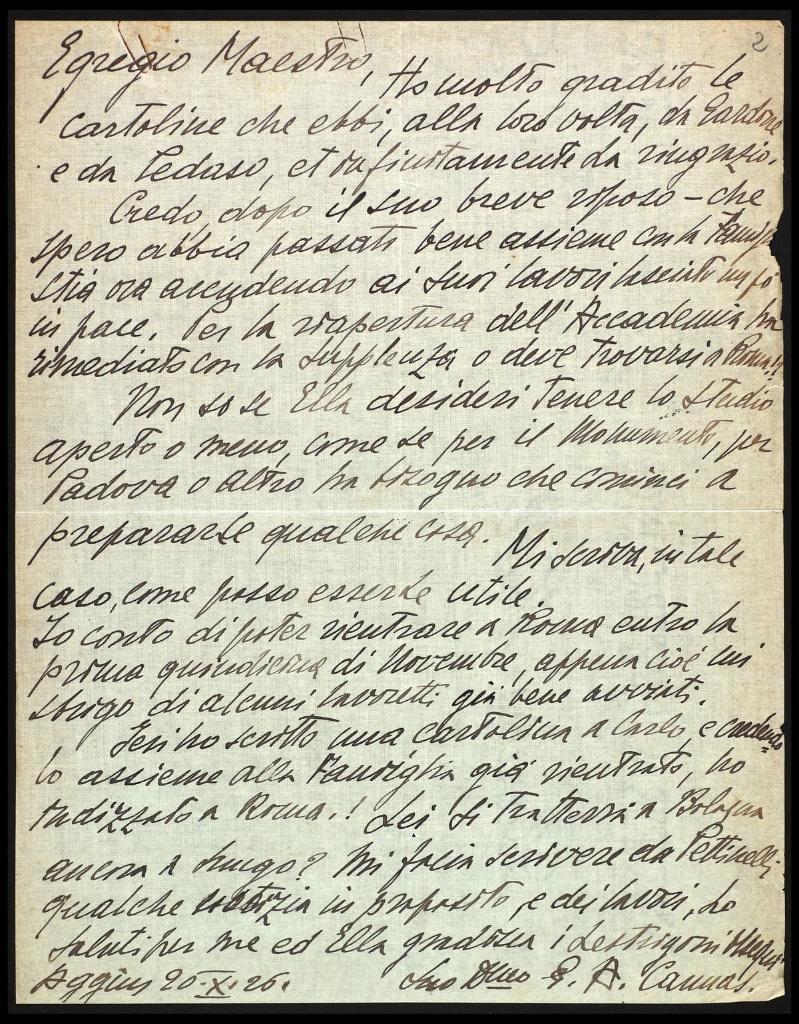 2
Egregio Maestro,
Ho molto gradito le
cartoline che ebbi, alla loro volta, da Gardone
e da Tedaso, et infinitamente La ringrazio.
Credo, dopo il suo breve riposo – che
spero abbia passato bene assieme con la Famiglia
stia ora accudendo ai suoi lavori lasciati un po'
in pace. Per la riapertura dell'Accademia ha
rimediato con la supplenza o deve trovarsi a Roma!?
Non so se Ella desideri tenere lo studio
aperto o meno, come se per il Monumento, per
Padova o altro ha bisogno che cominci a
prepararLe qualche cosa.
Mi scriva, in tale
caso, come posso esserLe utile.
Io conto di poter rientrare a Roma entro la
prima quindicina di Novembre, appena cioè mi
sbrigo di alcuni lavoretti già bene avviati.
Ieri ho scritto una cartolina a Carlo, e creden
lo assieme alla Famiglia già rientrato, ho
indizzato a Roma.! Lei si tratterrà a Bologna
ancora a lungo? Mi facia scrivere da Pettinelli
qualche notizia in proposito, e dei lavori, Lo
saluti per me ed Ella gradisca i
Aggius 20.X.26. Suo D.mo E. A. Cannas.